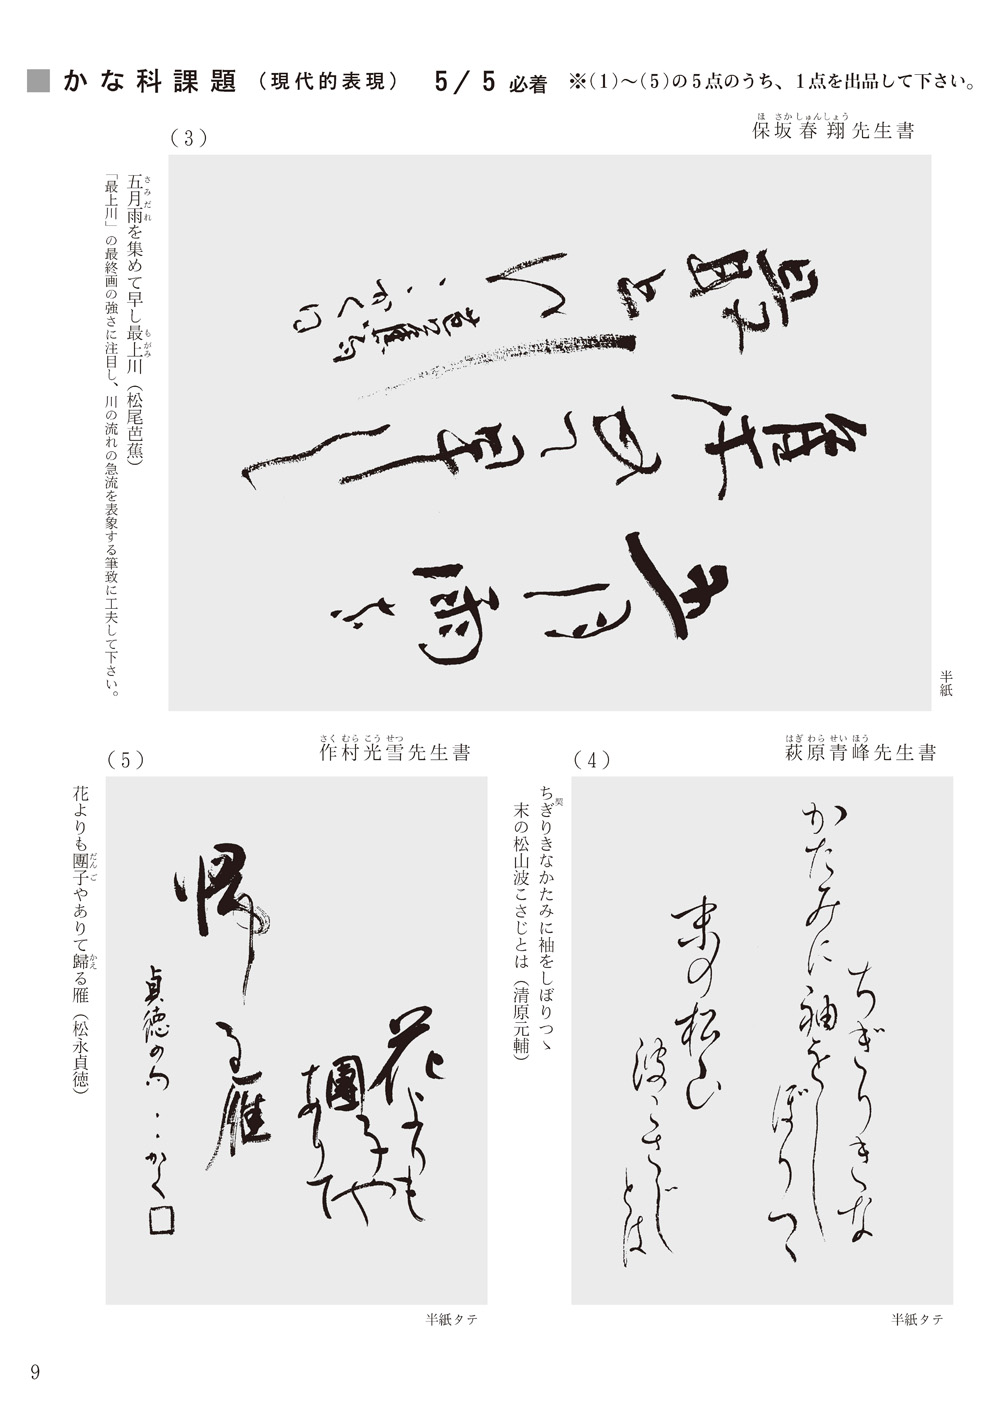 ■かな科課題（現代的表現） 5/5 必着 ※(1)〜(5)の5点のうち、1点を出品して下さい。
(3)
保坂春翔先生書
ほさかしゅんしょう
五月雨を集めて早し最上川（松尾芭蕉）
さみだれ
もがみ
「最上川」の最終画の強さに注目し、川の流れの急流を表象する筆致に工夫して下さい。
五月雨を
集めて早し
最上川
芭蕉の句
かく□
半紙
(4)
萩原青峰先生書
はぎわらせいほう
ちぎりきなかたみに袖をしぼりつゝ
契
末の松山波こさじとは（清原元輔）
ちぎりきな
かたみに袖をし
ぼりつゝ
末の松山
波こさじ
とは
半紙タテ
(5)
作村光雪先生書
さくむらこうせつ
花よりも團子やありて歸る雁（松永貞徳）
だんご
かえ
花よりも
團子や
ありて
帰
る雁
貞徳の句
かく□
半紙タテ
9